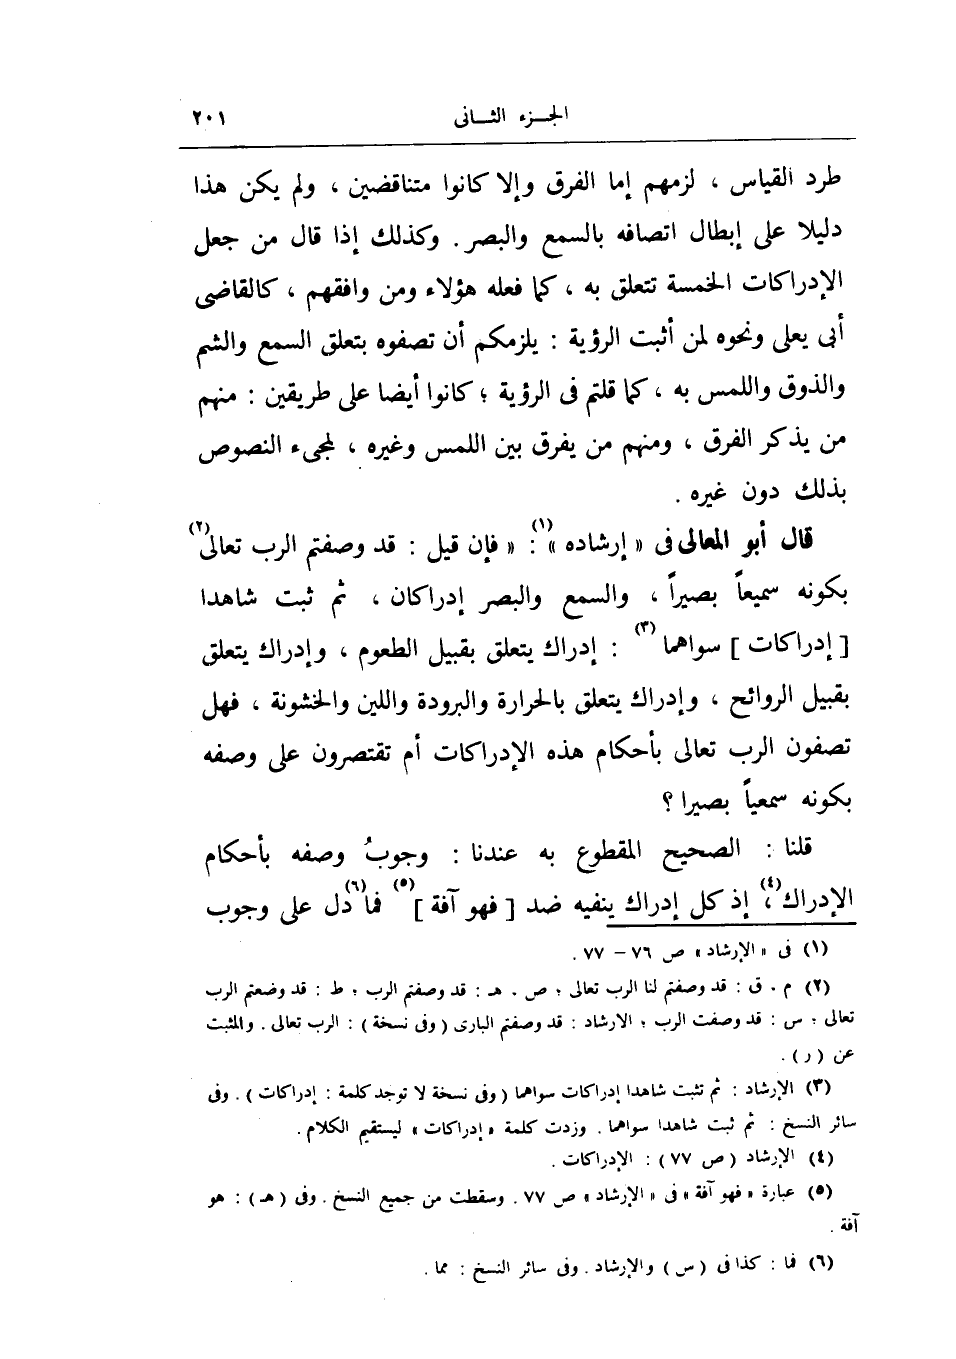 الجزء الثانى ٢٠١
طرد القياس ، لزمهم إما الفرق وإلا كانوا متناقضين ، ولم يكن هذا
دليلا على إبطال اتصافه بالسمع والبصر . وكذلك إذا قال من جعل
الإدراكات الخمسة تتعلق به ، كما فعله هؤلاء ومن وافقهم ، كالقاضى
أبى يعلى ونحوه لمن أثبت الرؤية : يلزمكم أن تصفوه بتعلق السمع والشم
والذوق واللمس به ، كما قلتم فى الرؤية ؛ كانوا أيضا على طريقين : منهم
من يذكر الفرق ، ومنهم من يفرق بين اللمس وغيره ، لمجىء النصوص
بذلك دون غيره .
قال أبو المعالى فى « إرشاده »(١) : « فإن قيل : قد وصفتم الرب تعالى(٢)
بكونه سميعاً بصيراً ، والسمع والبصر إدراكان ، ثم ثبت شاهدا
[ إدراكات ] سواهما(٣) : إدراك يتعلق بقبيل الطعوم ، وإدراك يتعلق
بقبيل الروائح ، وإدراك يتعلق بالحرارة والبرودة واللين والخشونة ، فهل
تصفون الرب تعالى بأحكام هذه الإدراكات أم تقتصرون على وصفه
بكونه سمعياً بصيرا ؟
قلنا : الصحيح المقطوع به عندنا : وجوبُ وصفه بأحكام
الإدراك(٤) ، إذ كل إدراك ينفيه ضد [ فهو آفة ](٥) فما(٦) دل على وجوب
(١) فى « الإرشاد » ص ٧٦ – ٧٧ .
(٢) م ، ق : قد وصفتم لنا الرب تعالى ؛ ص . هـ : قد وصفتم الرب ؛ ط : قد وضعتم الرب
تعالى ؛ س : قد وصفت الرب ؛ الارشاد : قد وصفتم البارى ( وفى نسخة ) : الرب تعالى . والمثبت
عن ( ر ) .
(٣) الإرشاد : ثم تثبت شاهدا إدراكات سواهما ( وفى نسخة لا توجد كلمة : إدراكات ) . وفى
سائر النسخ : ثم ثبت شاهدا سواهما . وزدت كلمة « إدراكات » ليستقيم الكلام .
(٤) الإرشاد ( ص ٧٧ ) : الإدراكات .
(٥) عبارة « فهو آفة » فى « الإرشاد » ص ٧٧ . وسقطت من جميع النسخ . وفى ( هـ ) : هو
آفة .
(٦) فما : كذا فى ( س ) والإرشاد . وفى سائر النسخ : مما .